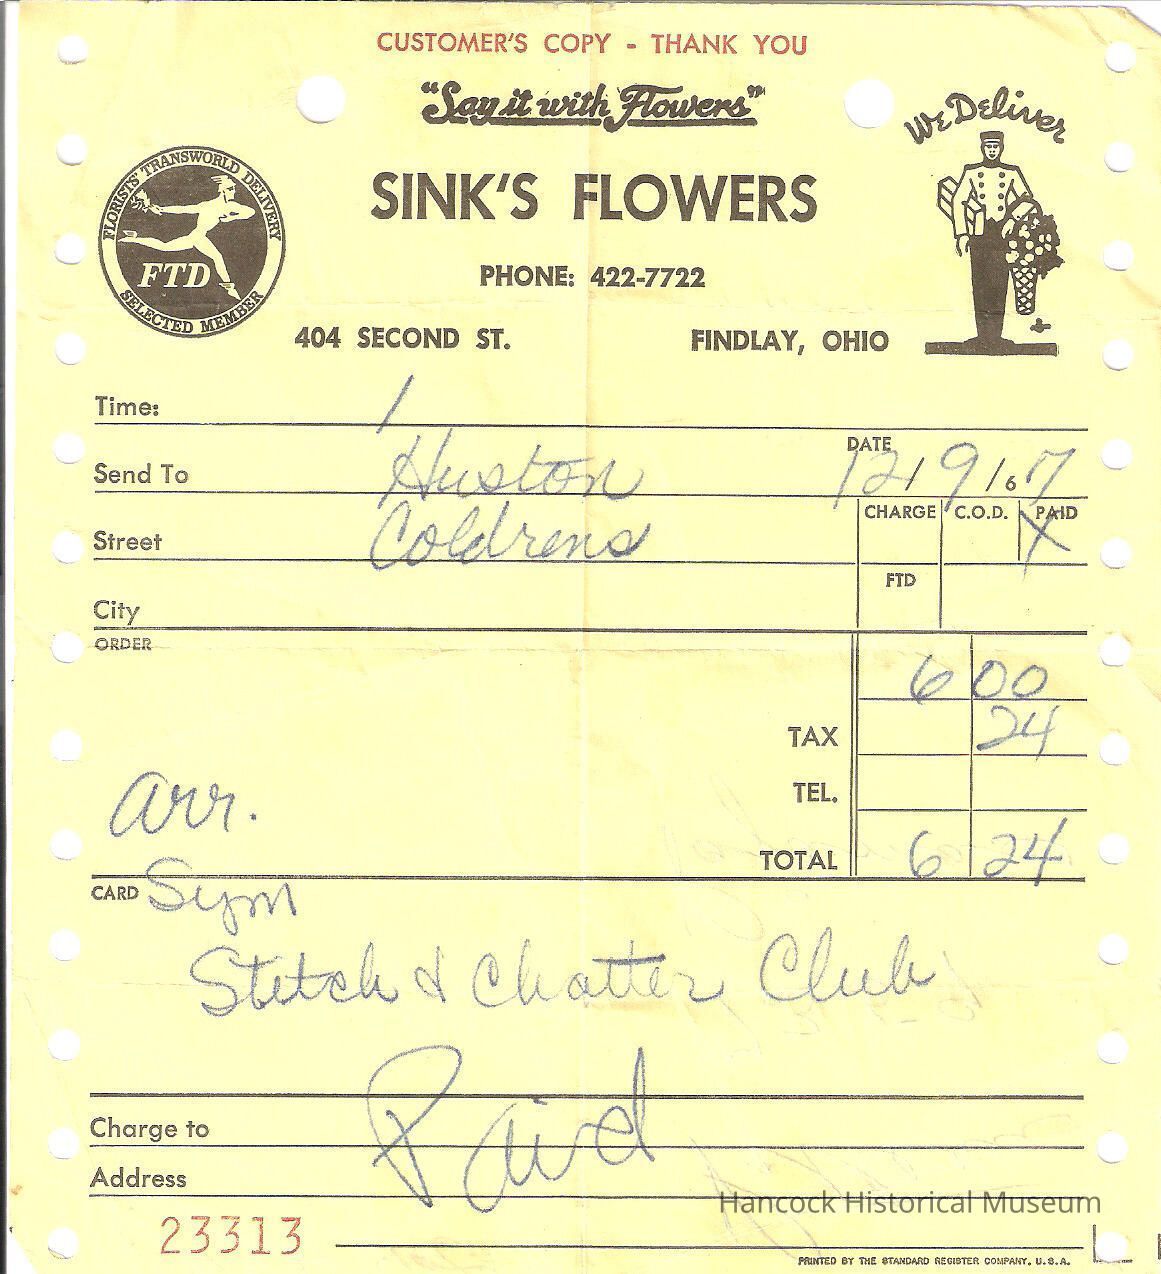 CUSTOMER'S COPY - THANK YOU
"Say it with Flowers"
We Deliver
FLORISTS' TRANSWORLD DELIVERY
FTD
SELECTED MEMBER
SINK'S FLOWERS
PHONE: 422-7722
404 SECOND ST. FINDLAY, OHIO
Time: /
DATE 12/9/67
Send To Huston
CHARGE C.O.D. PAID X
Street Coldrens
FTD
City
ORDER
6 00
TAX 24
TEL.
arr.
TOTAL 6 24
CARD Sym
Stitch & Chatter Club
Paid
Charge to
Address
Hancock Historical Museum
23313
PRINTED BY THE STANDARD REGISTER COMPANY, U.S.A.